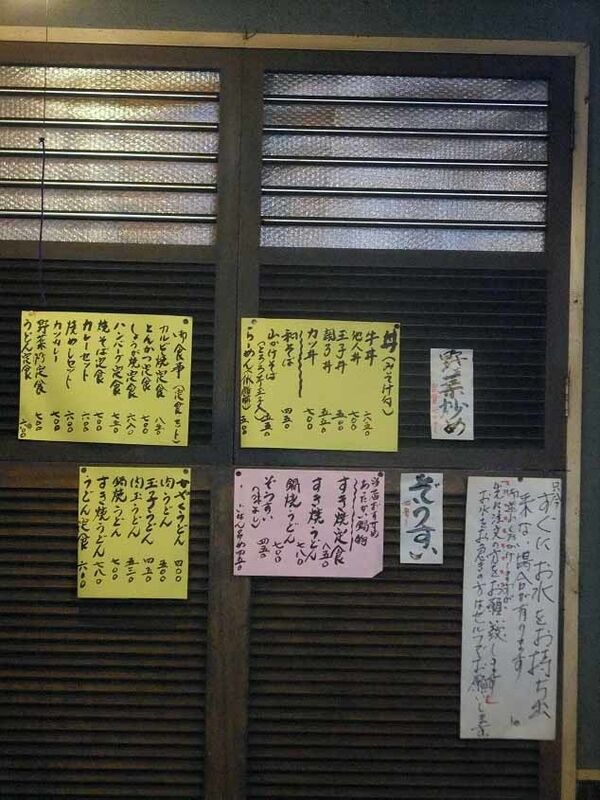 御食事(定食セット)
カルビ焼定食 八五〇
とんかつ定食 七〇〇
しょうが焼定食 六八〇
ハンバーグ定食 七五〇
焼そば定食 七〇〇
カレーセット 七〇〇
焼めしセット 七〇〇
カツカレー 六〇〇
野菜炒定食 七〇〇
うどん定食 六〇〇
丼(みそ汁付)
牛丼 六五〇
他人丼
玉子丼 五〇〇
親子丼
カツ丼
和そば 四五〇
山かけそば
らーめん
野菜炒め
かやくうどん 四〇〇
肉うどん 五〇〇
玉子うどん 四五〇
肉玉うどん 五五〇
鍋焼うどん 七〇〇
すき焼うどん 七八〇
うどん定食 六〇〇
あたたかい鍋物
すき焼定食 八五〇
すき焼うどん 七八〇
鍋焼うどん 七〇〇
ぞうすい 四五〇
ぞうすい
すぐにお水をお持ち出
来ない場合が有ります
お水をお急ぎの方はセルフでお願いします